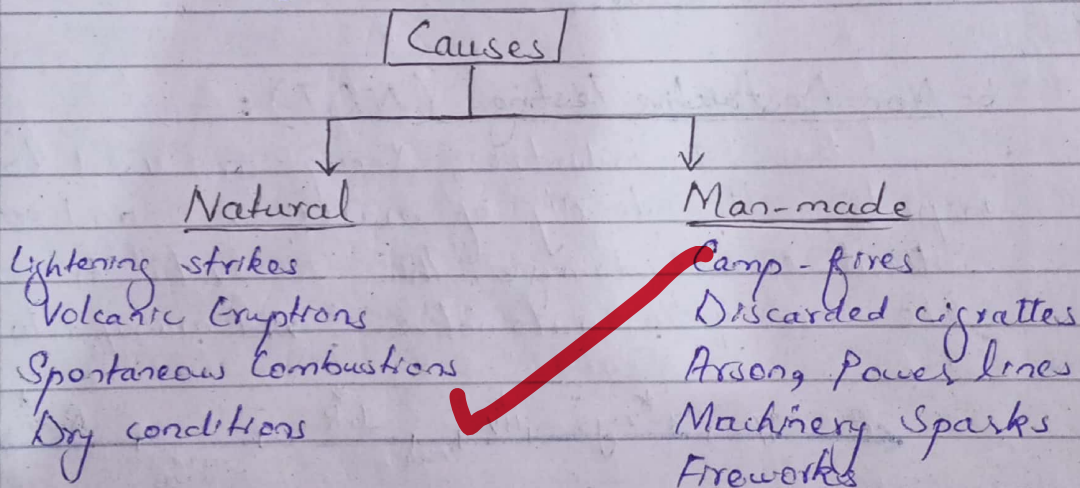 Causes
Natural
Man-made
Lightening strikes
Volcanic Eruptions
Spontaneous Combustions
Dry conditions
Camp-fires
Discarded cigrattes
Arson, Power lines
Machinery Sparks
Fireworks